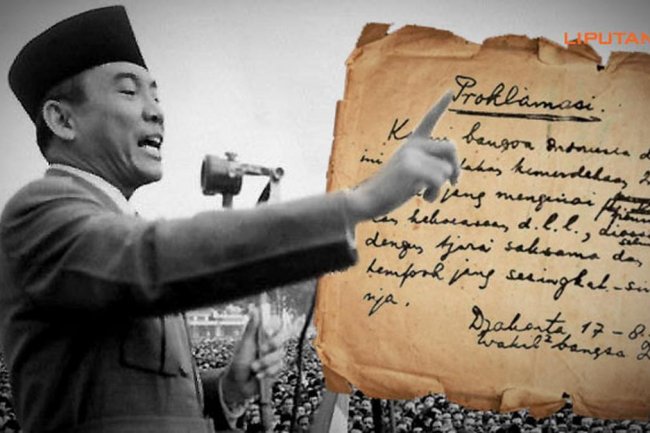 LIPUTAN
Proklamasi.
bangsa Indonesia
kemerdekaan
jang mengenai
kekoeasaan d.l.l.,
dengan tjara saksama dan
tempoh jang sesingkat-si
nja.
Djakarta 17-8
Wakil2 bangsa